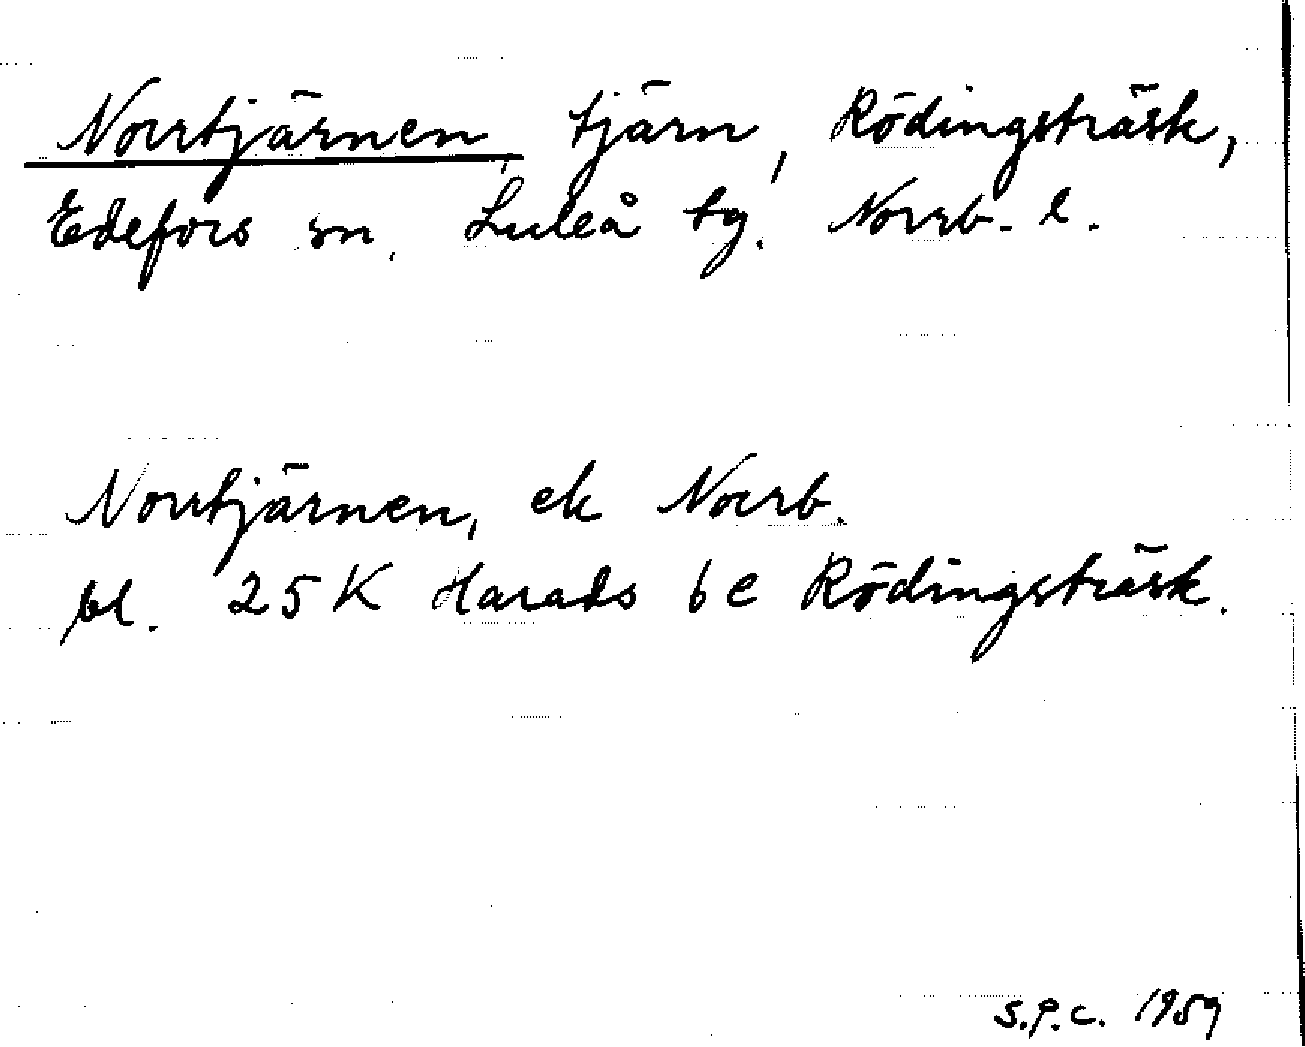 Norrtjärnen, tjärn, Rödingsträsk,
Edefors sn. Luleå tg. Norrb. l.
Norrtjärnen, ek Norrb.
bl. 25 K Harads 6 e Rödingsträsk.
S.P.C. 1959